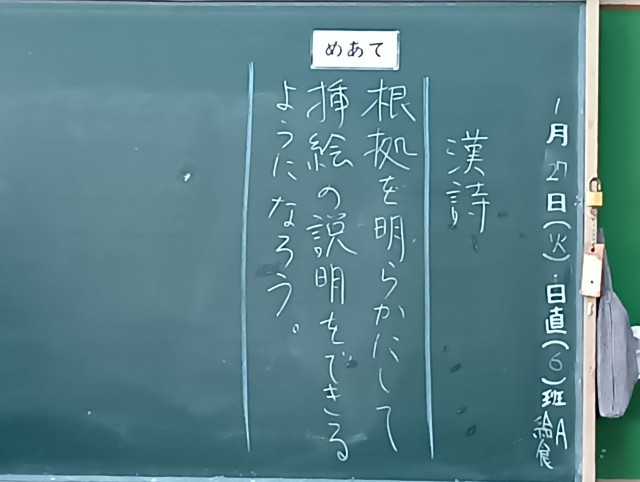 1月27日(火)・日直(6)班
給食A
漢詩
めあて
根拠を明らかにして
挿絵の説明をできる
ようになろう。